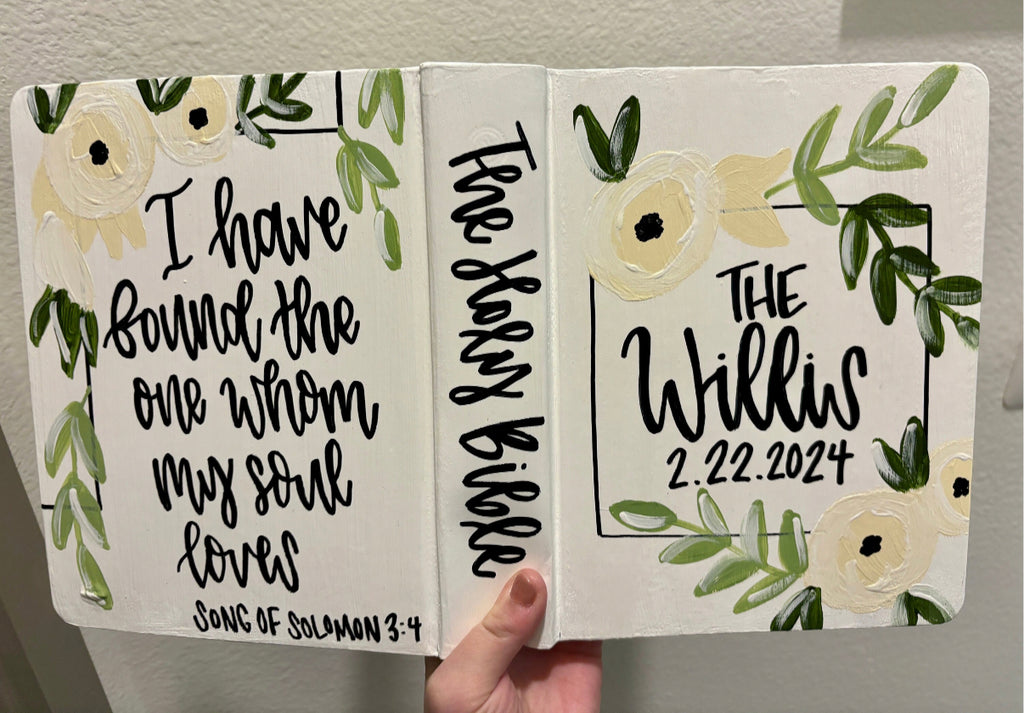 I have
found the
one whom
my soul
loves
SONG OF SOLOMON 3:4
The Holy Bible
THE
Willis
2.22.2024